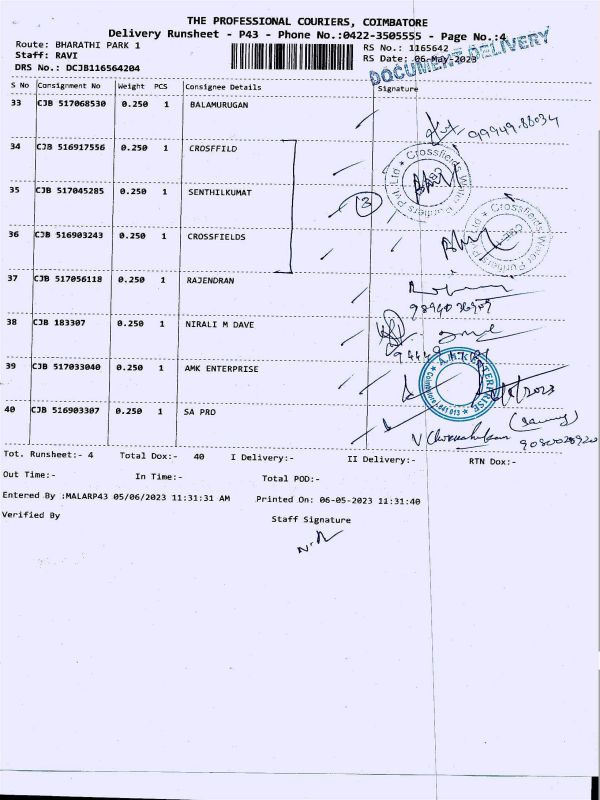 THE PROFESSIONAL COURIERS, COIMBATORE
Delivery Runsheet - P43 - Phone No.:0422-3505555 - Page No.:4
Route: BHARATHI PARK 1
RS No.: 1165642
Staff: RAVI
RS Date: 06-May-2023
DRS No.: DCJB116564204
DOCUMENT DELIVERY
S No Consignment No Weight PCS Consignee Details Signature
33 CJB 517068530 0.250 1 BALAMURUGAN
99949.88034
34 CJB 516917556 0.250 1 CROSFFILD
35 CJB 517045285 0.250 1 SENTHILKUMAT
3
36 CJB 516903243 0.250 1 CROSSFIELDS
37 CJB 517056118 0.250 1 RAJENDRAN
38 CJB 183307 0.250 1 NIRALI M DAVE
39 CJB 517033040 0.250 1 AMK ENTERPRISE
40 CJB 516903307 0.250 1 SA PRO
Tot. Runsheet:- 4 Total Dox:- 40 I Delivery:- II Delivery:- RTN Dox:-
Out Time:- In Time:- Total POD:-
Entered By :MALARP43 05/06/2023 11:31:31 AM Printed On: 06-05-2023 11:31:40
Verified By Staff Signature